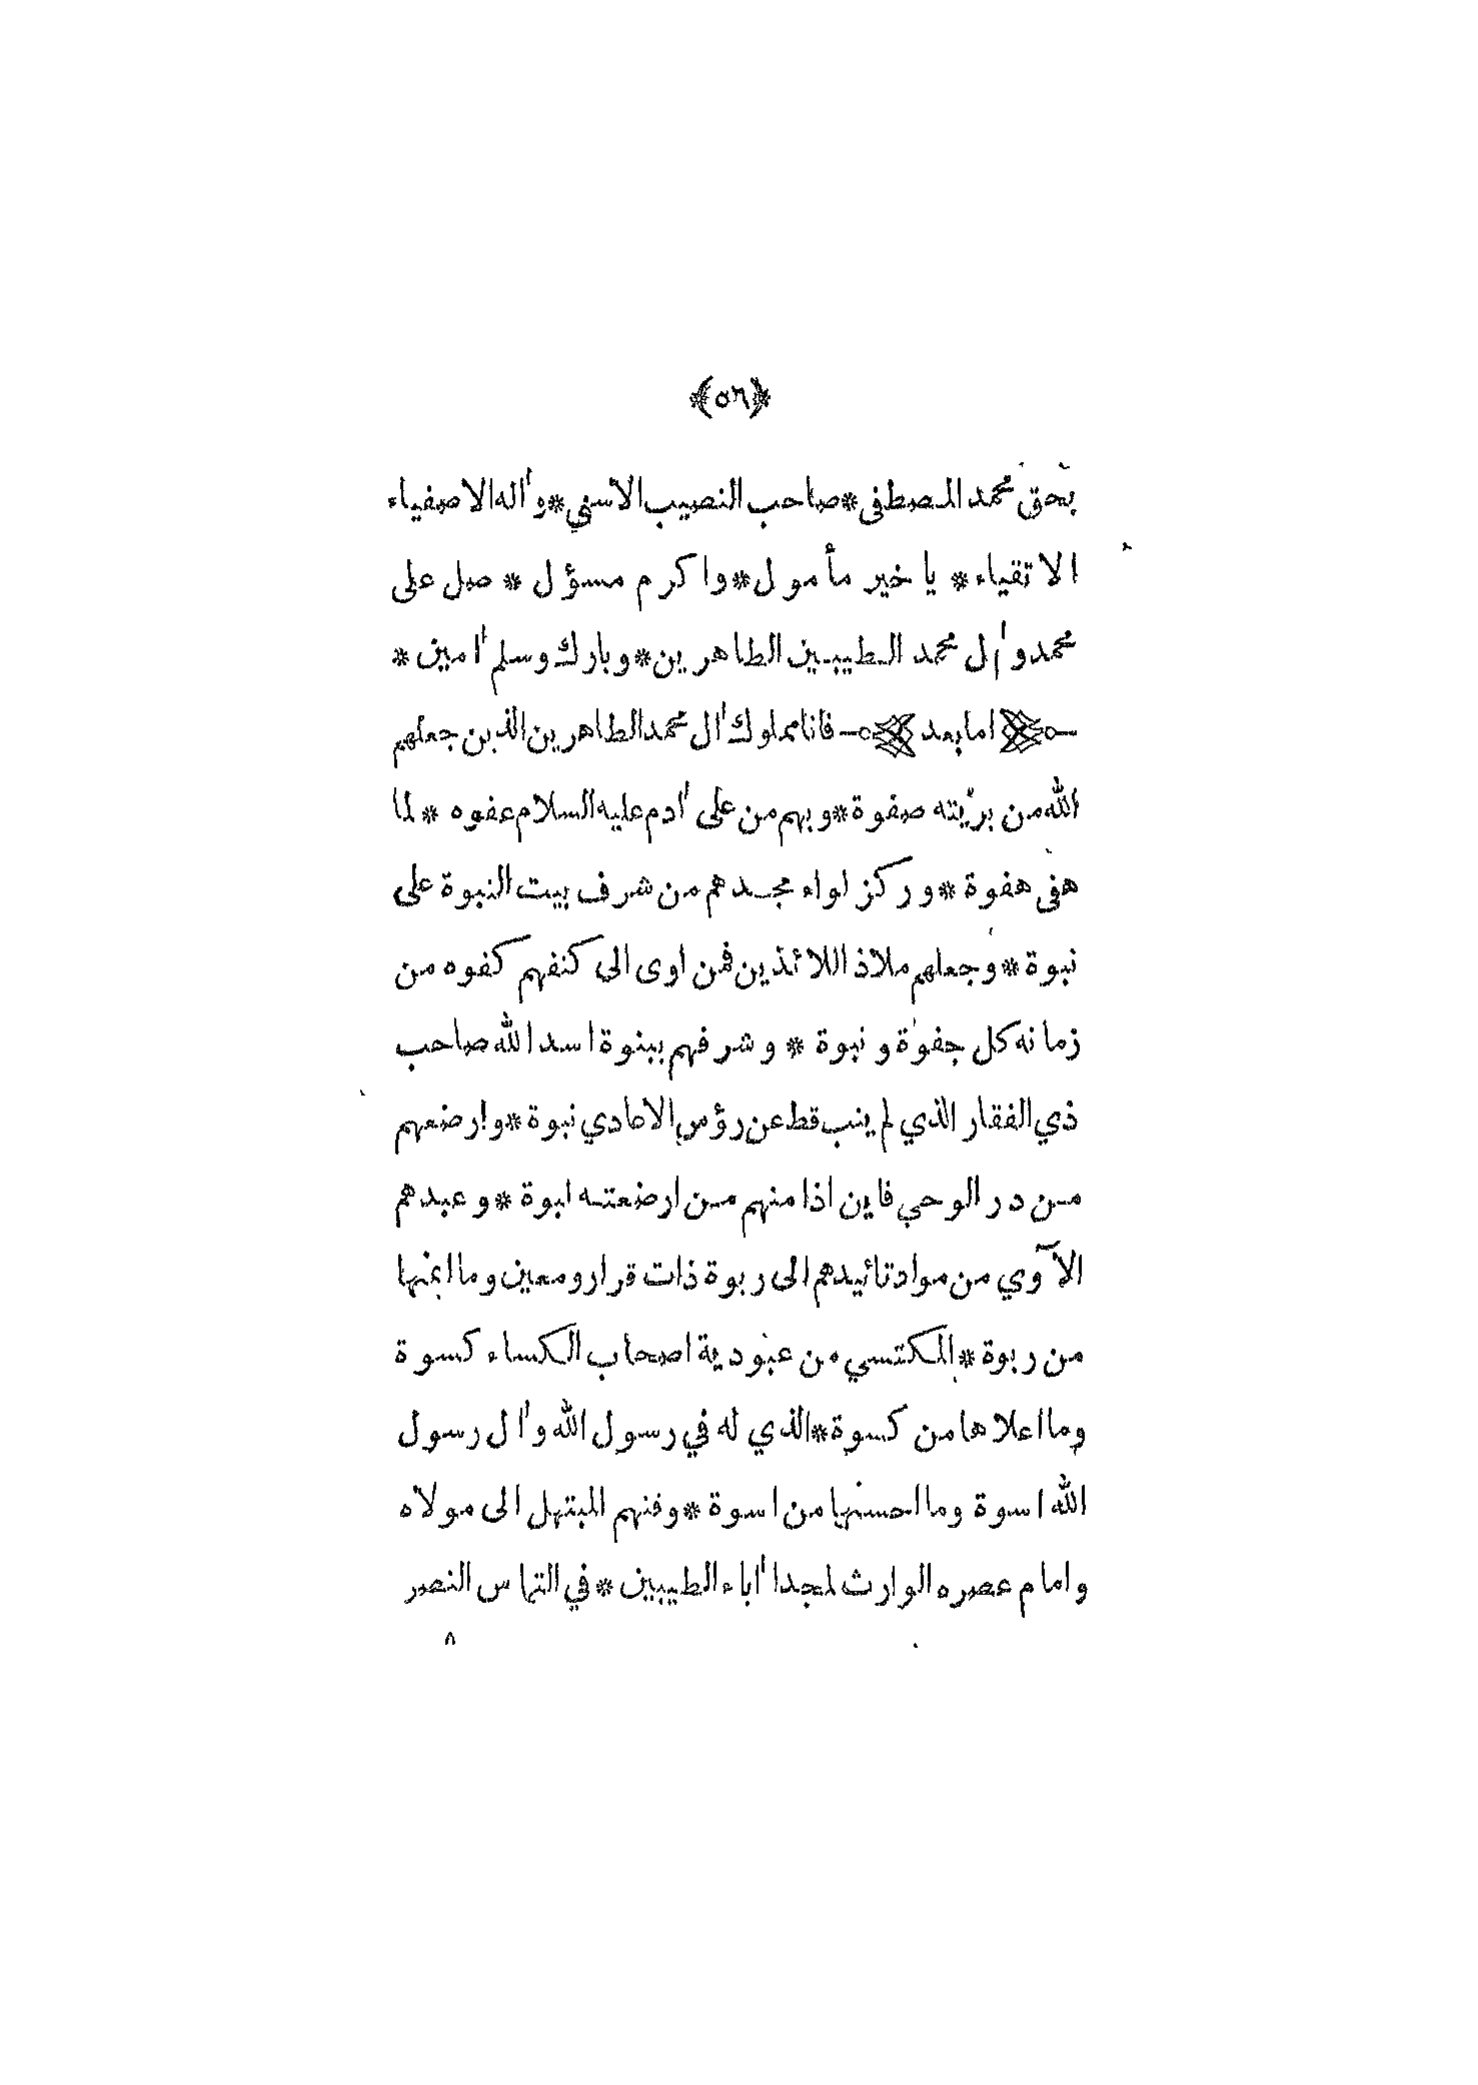 ﴿٥٦﴾
بحق محمد المصطفى * صاحب النصيب الاسنى * وآله الاصفياء
الاتقياء * يا خير مأمول * واكرم مسؤل * صل على
محمد وآل محمد الطيبين الطاهرين * وبارك وسلم آمين *
اما بعد فانا مملوك آل محمد الطاهرين الذين جعلهم
الله من بريّته صفوة * وبهم من على آدم عليه السلام عفوه * لما
هفى هفوة * وركز لواء مجدهم من شرف بيت النبوة على
نبوة * وجعلهم ملاذ اللائذين فمن اوى الى كنفهم كفوه من
زمانه كل جفوة ونبوة * وشرفهم ببنوة اسد الله صاحب
ذي الفقار الذي لم ينب قط عن رؤس الاعادي نبوة * وارضعهم
من در الوحي فاين اذا منهم من ارضعته ابوة * وعبدهم
الآوي من مواد تائيدهم الى ربوة ذات قرار ومعين وما ايمنها
من ربوة * المكتسي من عبودية اصحاب الكساء كسوة
وما اعلاها من كسوة * الذي له في رسول الله وآل رسول
الله اسوة وما احسنها من اسوة * وفنهم المبتهل الى مولاه
وامام عصره الوارث لمجد آباء الطيبين * في التماس النصر
٨